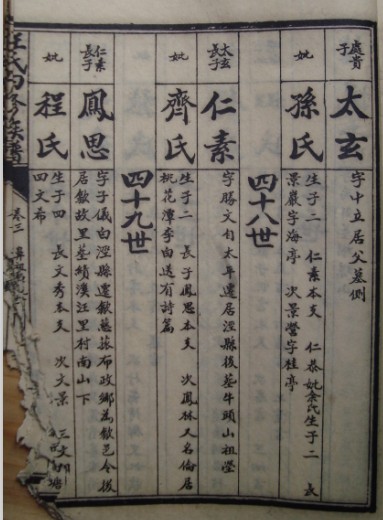 處貴子
太玄
字中立居父墓側
妣
孫氏
生子二 仁素本支 仁恭妣余氏生子二 長
景嚴字海亭 次景營字桂亭
四十八世
太玄長子
仁素
字勝文自太平遷居涇縣後葬牛頭山祖塋
妣
齊氏
生子二 長子鳳思本支 次鳳林又名倫居
桃花潭李白送有詩篇
四十九世
仁素長子
鳳思
字子儀自涇縣遷歙慈菰布政鄉為歙邑令後
居歙故里葬績溪汪里村南山下
妣
程氏
生子四 長文秀本支 次文景 三文
四文布
卷三